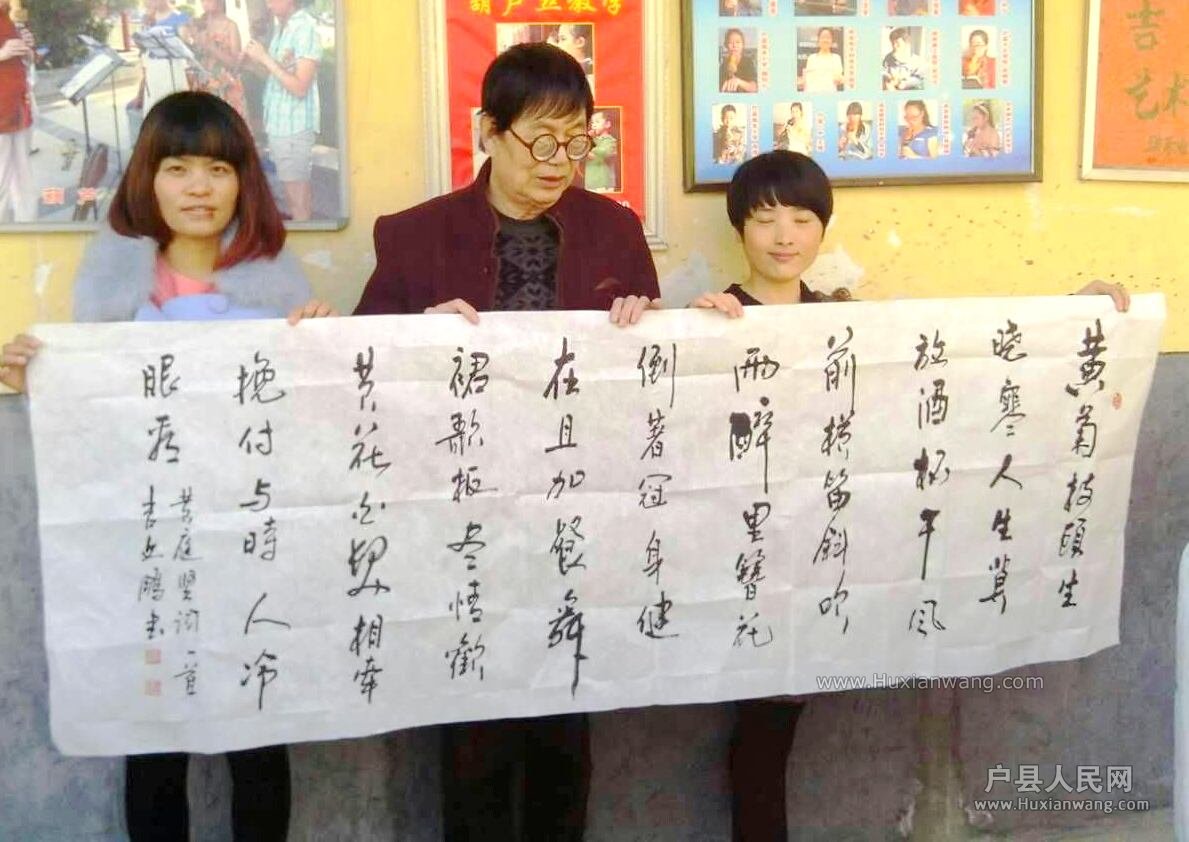 葫芦丝教学
葫芦
吉
艺术
黄菊枝頭生
晓寒人生莫
放酒杯干风
前横笛斜吹
雨醉里簪花
倒著冠身健
在且加餐舞
裙歌板尽情歡
黄花白发相牵
挽付与時人冷
眼看
黄庭坚词一首
吉 鹏书
www.Huxianwang.com
户县人民网
www.Huxianwang.com